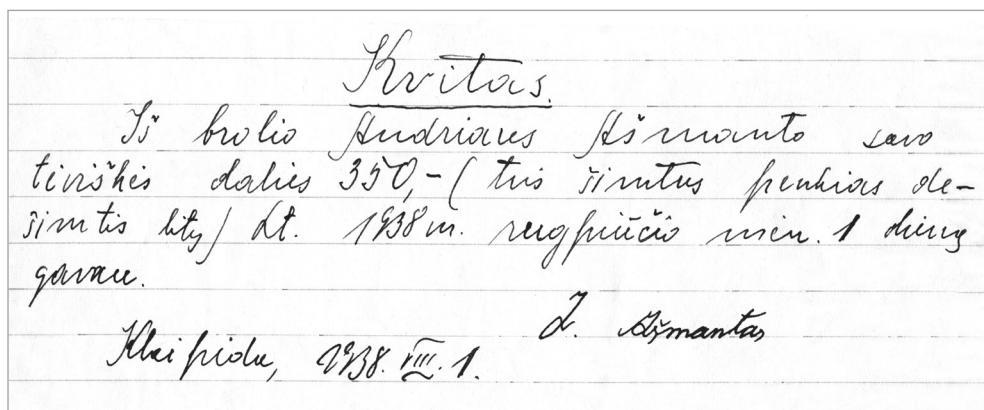 Kvitas.
Iš brolio Andriaus Ašmanto savo
tėviškės dalies 350,- ( tris šimtus penkias de-
šimtis litų) Lt. 1938 m. rugpiūčio mėn. 1 dieną
gavau.
J. Ašmantas
Klaipėda, 1938. VIII. 1.